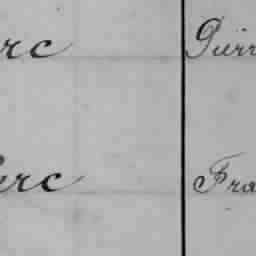 rc Pierr
erc Fra